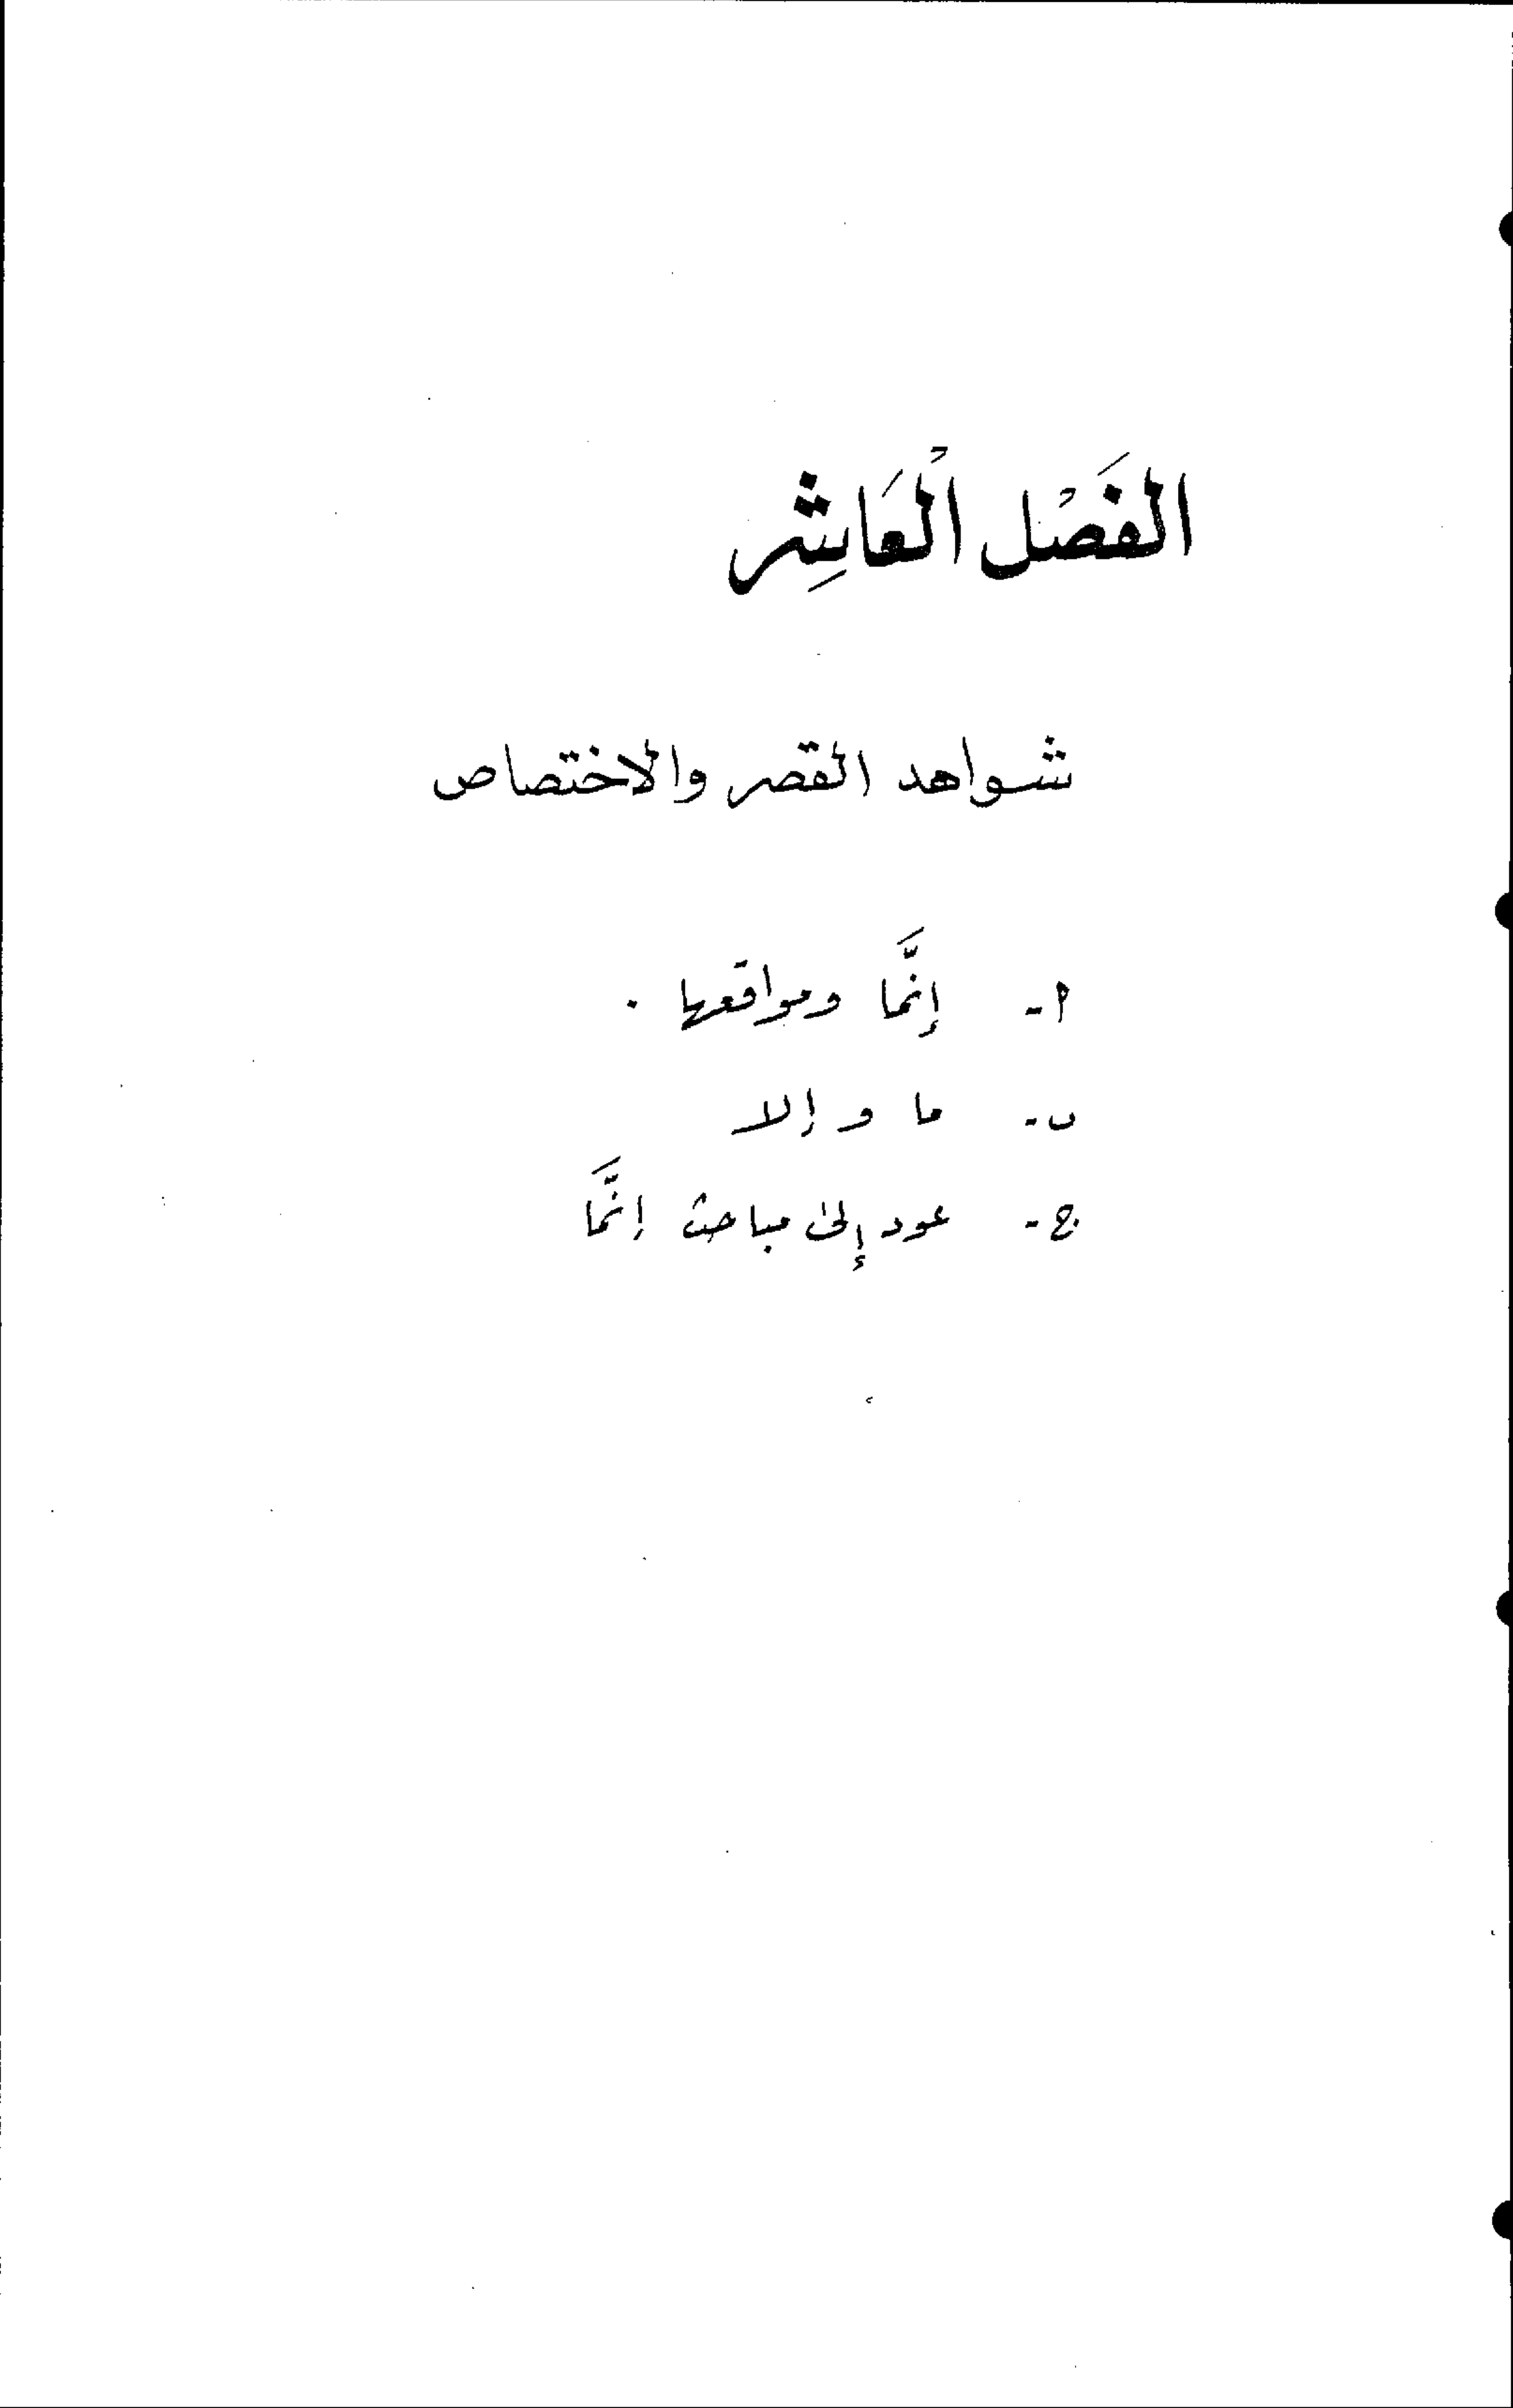 الفَصْل الْعَاشِر
شواهد القصر والاختصاص
أ- إنَّما ومواقعها .
ب- ما و إلا
ج- عود إلى مباحث إنَّما